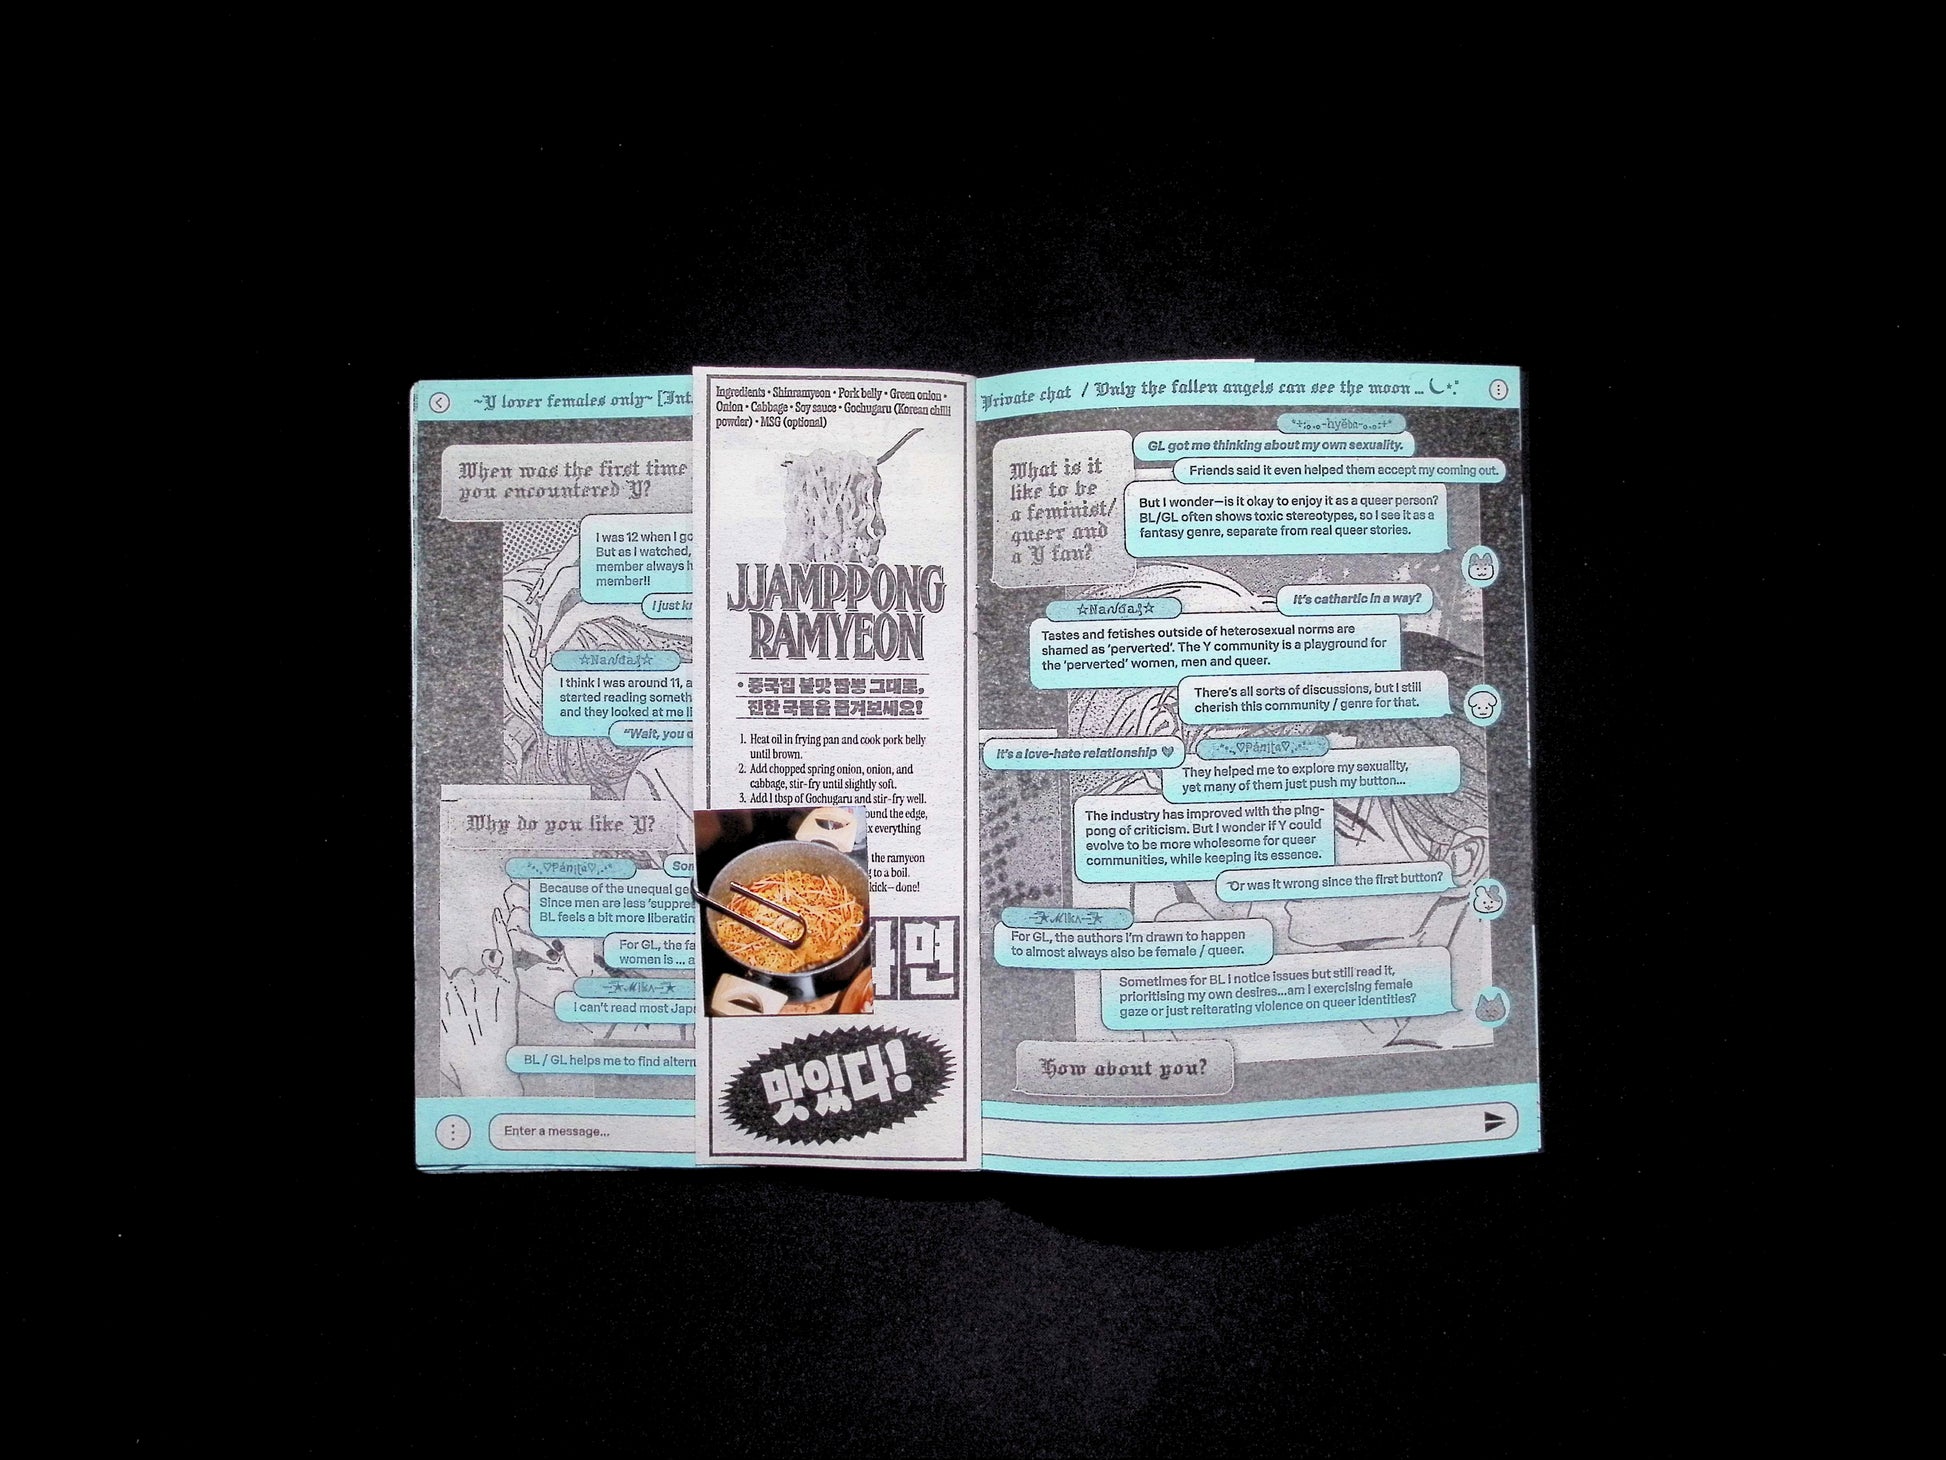 ~Y lover females only~ [Int
When was the first time
you encountered Y?
I was 12 when I go
But as I watched,
member always h
member!!
I just kn
☆Nanda☆
I think I was around 11, a
started reading someth
and they looked at me li
"Wait, you a
Why do you like Y?
Som
Because of the unequal ge
Since men are less 'suppre
BL feels a bit more liberatin
For GL, the fa
women is ... a
I can't read most Jap
BL / GL helps me to find altern
Enter a message...
Ingredients • Shinramyeon • Pork belly • Green onion •
Onion • Cabbage • Soy sauce • Gochugaru (Korean chilli
powder) • MSG (optional)
JJAMPPONG
RAMYEON
• 중국집 불맛 짬뽕 그대로,
진한 국물을 즐겨보세요!
1. Heat oil in frying pan and cook pork belly
until brown.
2. Add chopped spring onion, onion, and
cabbage, stir-fry until slightly soft.
3. Add 1 tbsp of Gochugaru and stir-fry well.
ound the edge,
x everything
the ramyeon
to a boil.
kick—done!
면
맛있다!
Private chat / Only the fallen angels can see the moon ...
What is it
like to be
a feminist/
queer and
a Y fan?
GL got me thinking about my own sexuality.
Friends said it even helped them accept my coming out.
But I wonder—is it okay to enjoy it as a queer person?
BL/GL often shows toxic stereotypes, so I see it as a
fantasy genre, separate from real queer stories.
It's cathartic in a way?
☆Nanda☆
Tastes and fetishes outside of heterosexual norms are
shamed as 'perverted'. The Y community is a playground for
the 'perverted' women, men and queer.
There's all sorts of discussions, but I still
cherish this community / genre for that.
It's a love-hate relationship
They helped me to explore my sexuality,
yet many of them just push my button...
The industry has improved with the ping-
pong of criticism. But I wonder if Y could
evolve to be more wholesome for queer
communities, while keeping its essence.
Or was it wrong since the first button?
For GL, the authors I'm drawn to happen
to almost always also be female / queer.
Sometimes for BL I notice issues but still read it,
prioritising my own desires...am I exercising female
gaze or just reiterating violence on queer identities?
How about you?